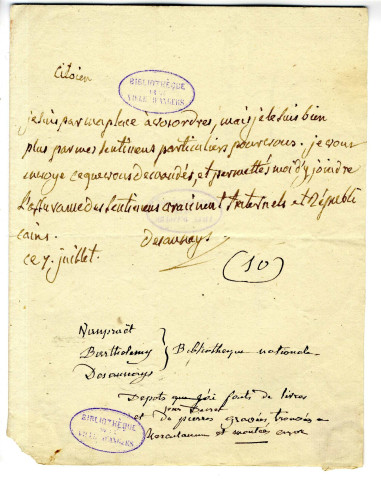 Citoien
BIBLIOTHÈQUE
DE LA
VILLE D'ANGERS
je suis par ma place à vos ordres, mais je le suis bien
plus par mes sentimens particuliers pour vous. je vous
envoye ce que vous demandés, et permettés moi d'y joindre
l'assurance des sentimens vraiment fraternels et républi
cains.
desaunays.
ce 7. juillet.
(10)
Vanpraët
Barthelemy } Bibliotheque nationale
Desaunays
Depots que j'ai faits de livres
et de pierres gravées, trouvées
et montées
BIBLIOTHÈQUE
DE LA
VILLE D'ANGERS